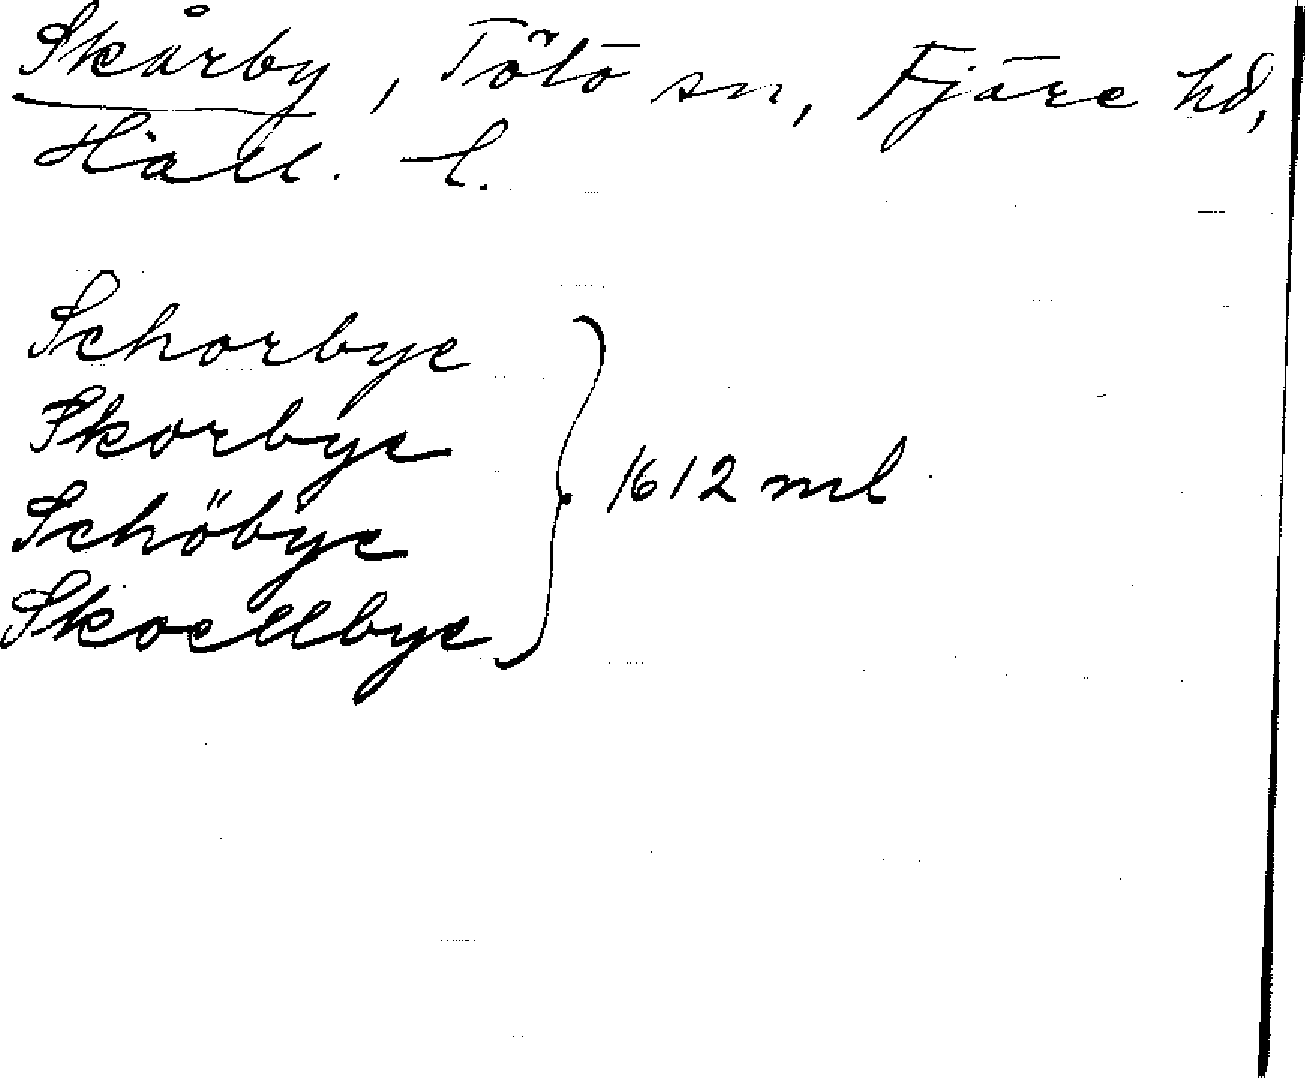 Skårby, Tölö sn, Fjäre hd,
Hall. l.
Schorbye
Skorbye
Schöbye
Skoellbye
1612 ml